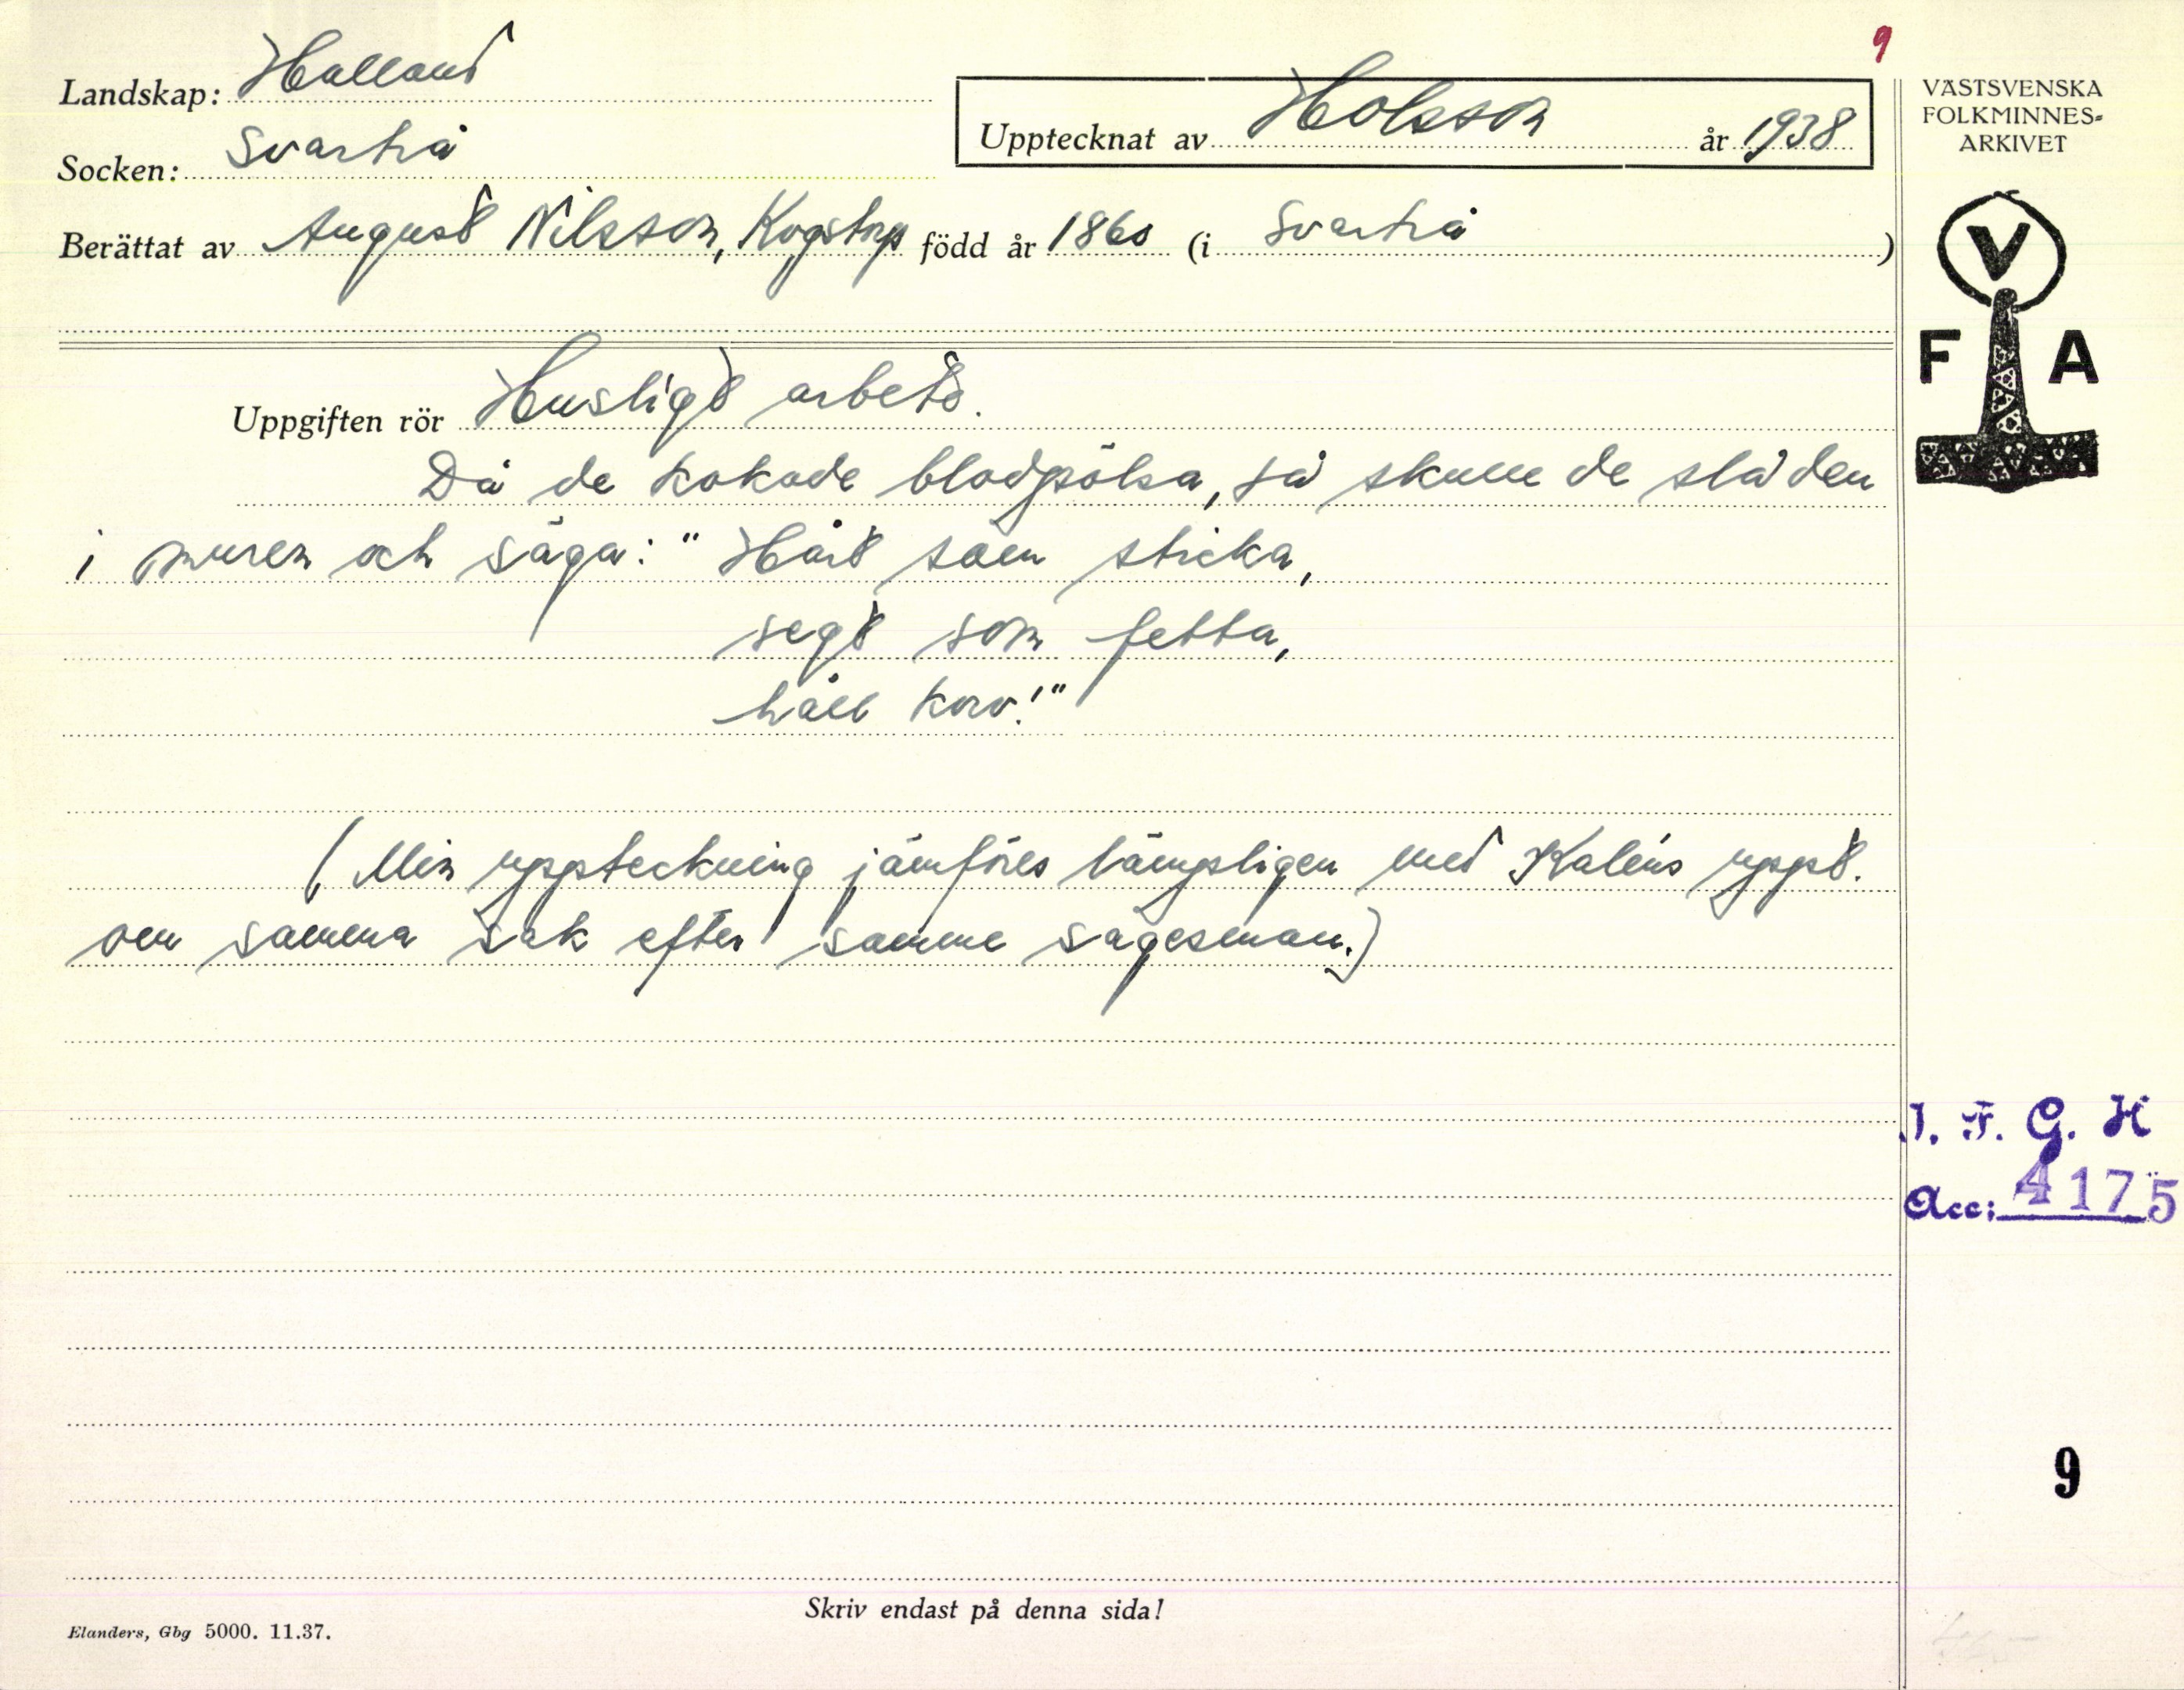 9
Landskap: Halland
Socken: Svartrå
Upptecknat av Holsson år 1938
VÄSTSVENSKA
FOLKMINNES-
ARKIVET
V
F A
Berättat av August Nilsson, Kogstorp född år 1860 (i Svartrå )
Uppgiften rör Husligt arbete.
Då de kokade blodpölsa, så skulle de slå den
i muren och säga: "Hårt som sticka,
segt som fetta,
håll korv!"
(Min uppteckning jämföres lämpligen med Kaléns uppt.
om samma sak efter samme sagesman.)
I. F. G. H
Acc: 4175
9
Skriv endast på denna sida!
Elanders, Gbg 5000. 11.37.